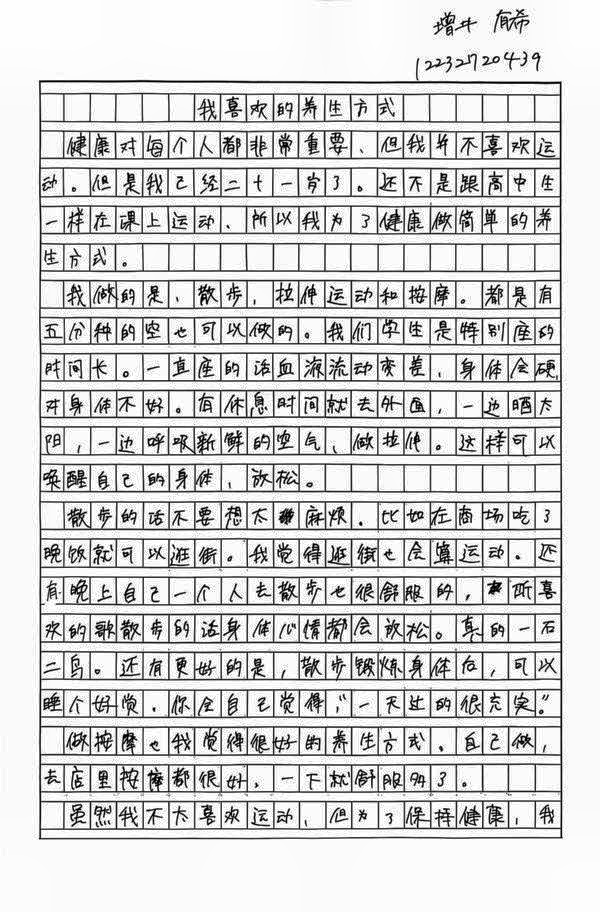 增井 有希
12232720439
我喜欢的养生方式
健康对每个人都非常重要、但我并不喜欢运
动。但是我已经二十一岁了。还不是跟高中生
一样在课上运动、所以我为了健康做简单的养
生方式。
我做的是、散步，拉伸运动和按摩。都是有
五分种的空也可以做的。我们学生是特别座的
时间长。一直座的话血液流动变差，身体会硬，
对身体不好。有休息时间就去外面，一边晒太
阳，一边呼吸新鲜的空气、做拉伸。这样可以
唤醒自己的身体，放松。
散步的话不要想太麻烦．比如在商场吃了
晚饭就可以逛街。我觉得逛街也会算运动。还
有晚上自己一个人去散步也很舒服的，听喜
欢的歌散步的话身体心情都会放松。真的一石
二鸟。还有更好的是，散步锻炼身体后，可以
睡个好觉，你会自己觉得，“一天过的很充实。”
做按摩也我觉得很好的养生方式．自己做，
去店里按摩都很好，一下就舒服多了。
虽然我不太喜欢运动，但为了保持健康，我